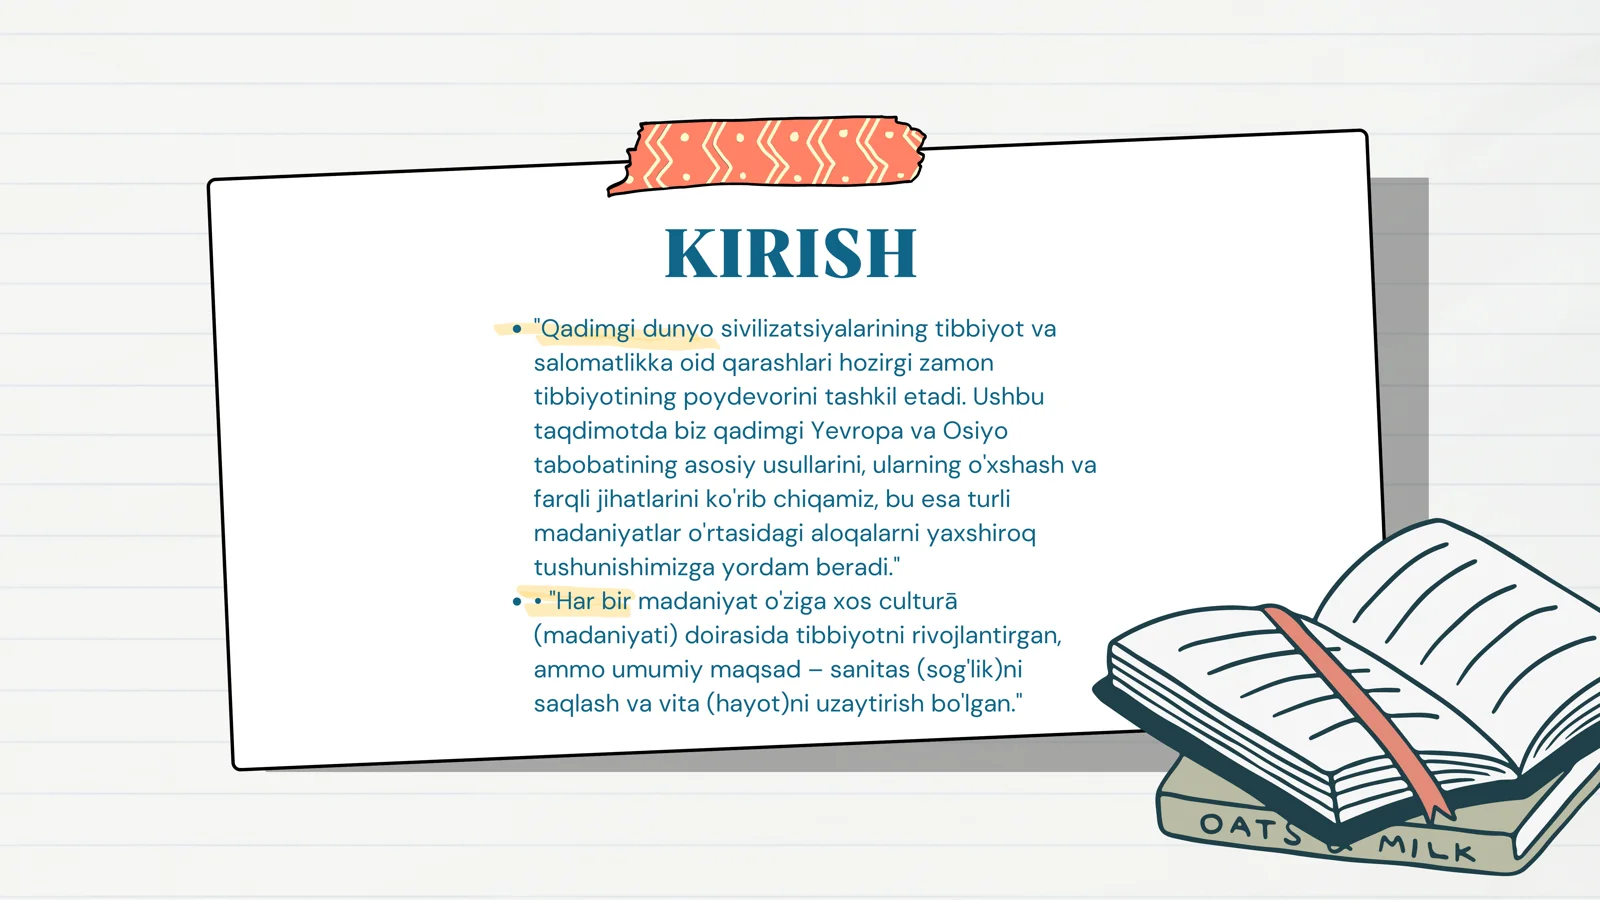 KIRISH
• "Qadimgi dunyo sivilizatsiyalarining tibbiyot va
salomatlikka oid qarashlari hozirgi zamon
tibbiyotining poydevorini tashkil etadi. Ushbu
taqdimotda biz qadimgi Yevropa va Osiyo
tabobatining asosiy usullarini, ularning o'xshash va
farqli jihatlarini ko'rib chiqamiz, bu esa turli
madaniyatlar o'rtasidagi aloqalarni yaxshiroq
tushunishimizga yordam beradi."
• • "Har bir madaniyat o'ziga xos culturā
(madaniyati) doirasida tibbiyotni rivojlantirgan,
ammo umumiy maqsad – sanitas (sog'lik)ni
saqlash va vita (hayot)ni uzaytirish bo'lgan."
OATS & MILK